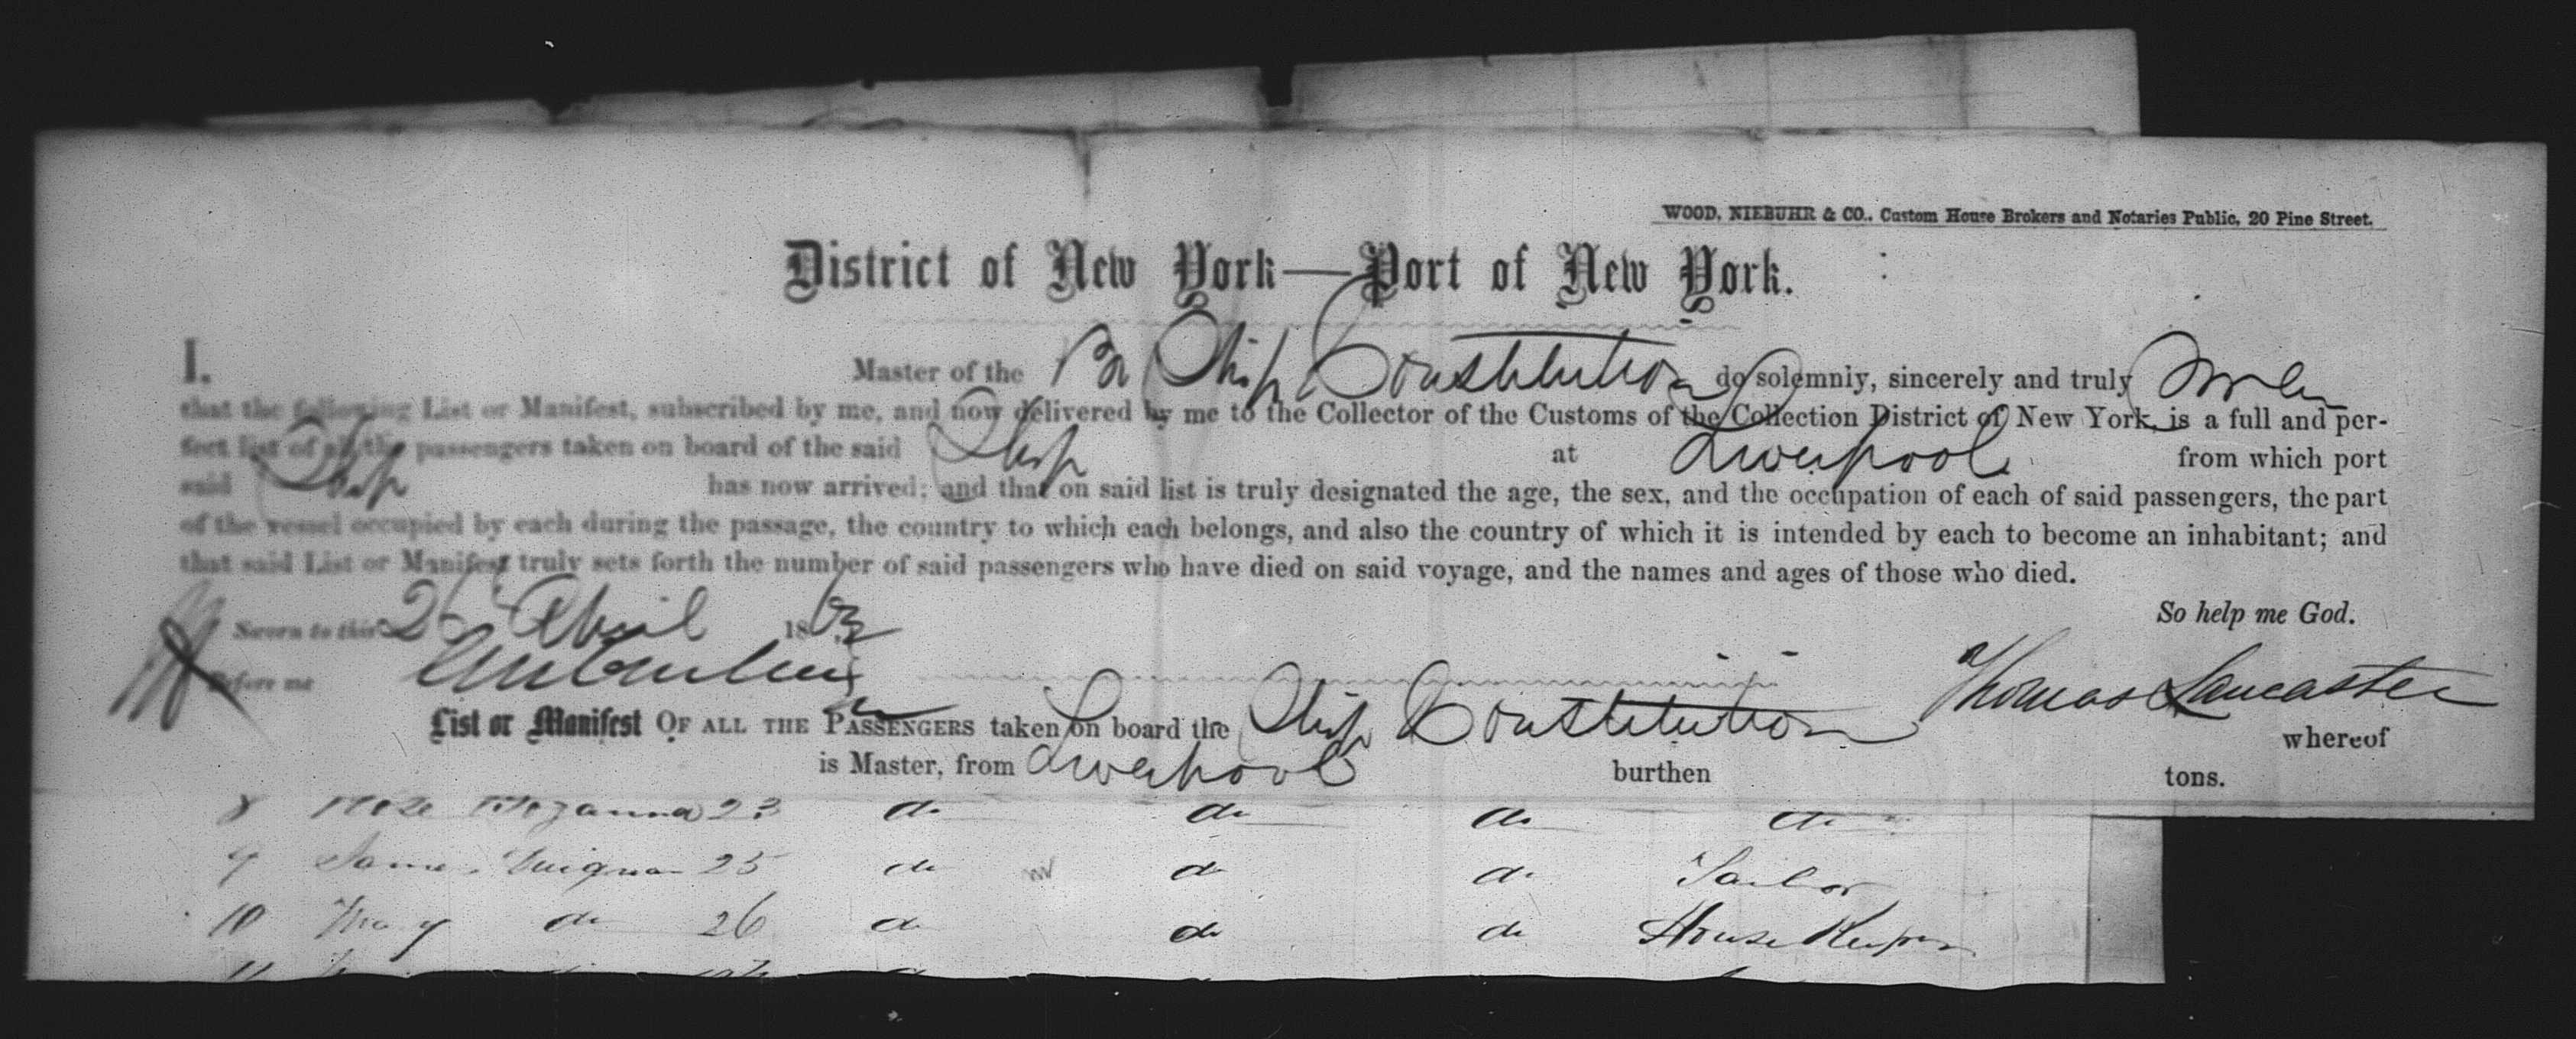 WOOD, NIEBUHR & CO., Custom House Brokers and Notaries Public, 20 Pine Street.
District of New York—Port of New York.
I. Master of the Br Ship Constitution do solemnly, sincerely and truly Swear
that the following List or Manifest, subscribed by me, and now delivered by me to the Collector of the Customs of the Collection District of New York, is a full and per-
fect list of all the passengers taken on board of the said Ship at Liverpool from which port
said Ship has now arrived; and that on said list is truly designated the age, the sex, and the occupation of each of said passengers, the part
of the vessel occupied by each during the passage, the country to which each belongs, and also the country of which it is intended by each to become an inhabitant; and
that said List or Manifest truly sets forth the number of said passengers who have died on said voyage, and the names and ages of those who died.
So help me God.
Sworn to this April 1863
Before me
Thomas Lancaster
List or Manifest OF ALL THE PASSENGERS taken on board the Ship Constitution whereof
is Master, from Liverpool burthen tons.
8 23 do do do do
9 25 do do do Tailor
10 Mary do 26 do do do House Keeper
11